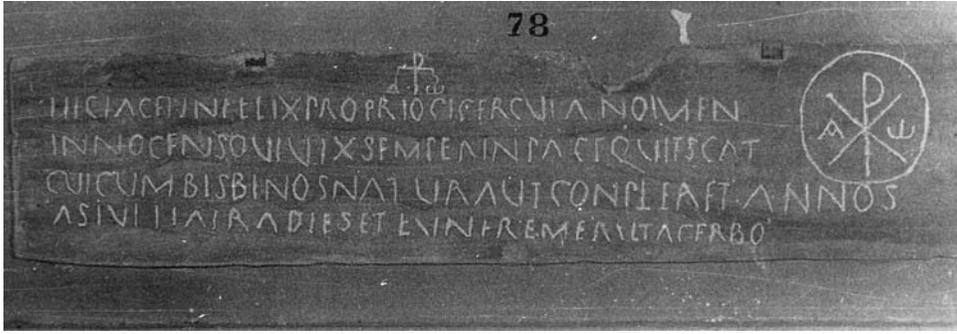 78
Α ☧ ω
HIC IACET INFELIX PROPRIO CICERCVLA NOMEN
INNOCENS QVI VIX SEMPER IN PACE QVIESCAT
CVI CVM BIS BINOS NATVRA VT CONPLERET ANNOS
ABSTVLIT ATRA DIES ET FVNERE MERSIT ACERBO
Α ☧ ω